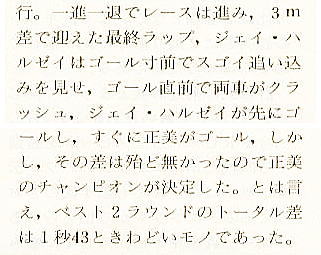 行。一進一退でレースは進み，３ｍ
差で迎えた最終ラップ，ジェイ・ハ
ルゼイはゴール寸前でスゴイ追い込
みを見せ，ゴール直前で両車がクラ
ッシュ，ジェイ・ハルゼイが先にゴ
ールし，すぐに正美がゴール，しか
し，その差は殆ど無かったので正美
のチャンピオンが決定した。とは言
え，ベスト２ラウンドのトータル差
は１秒43ときわどいモノであった。